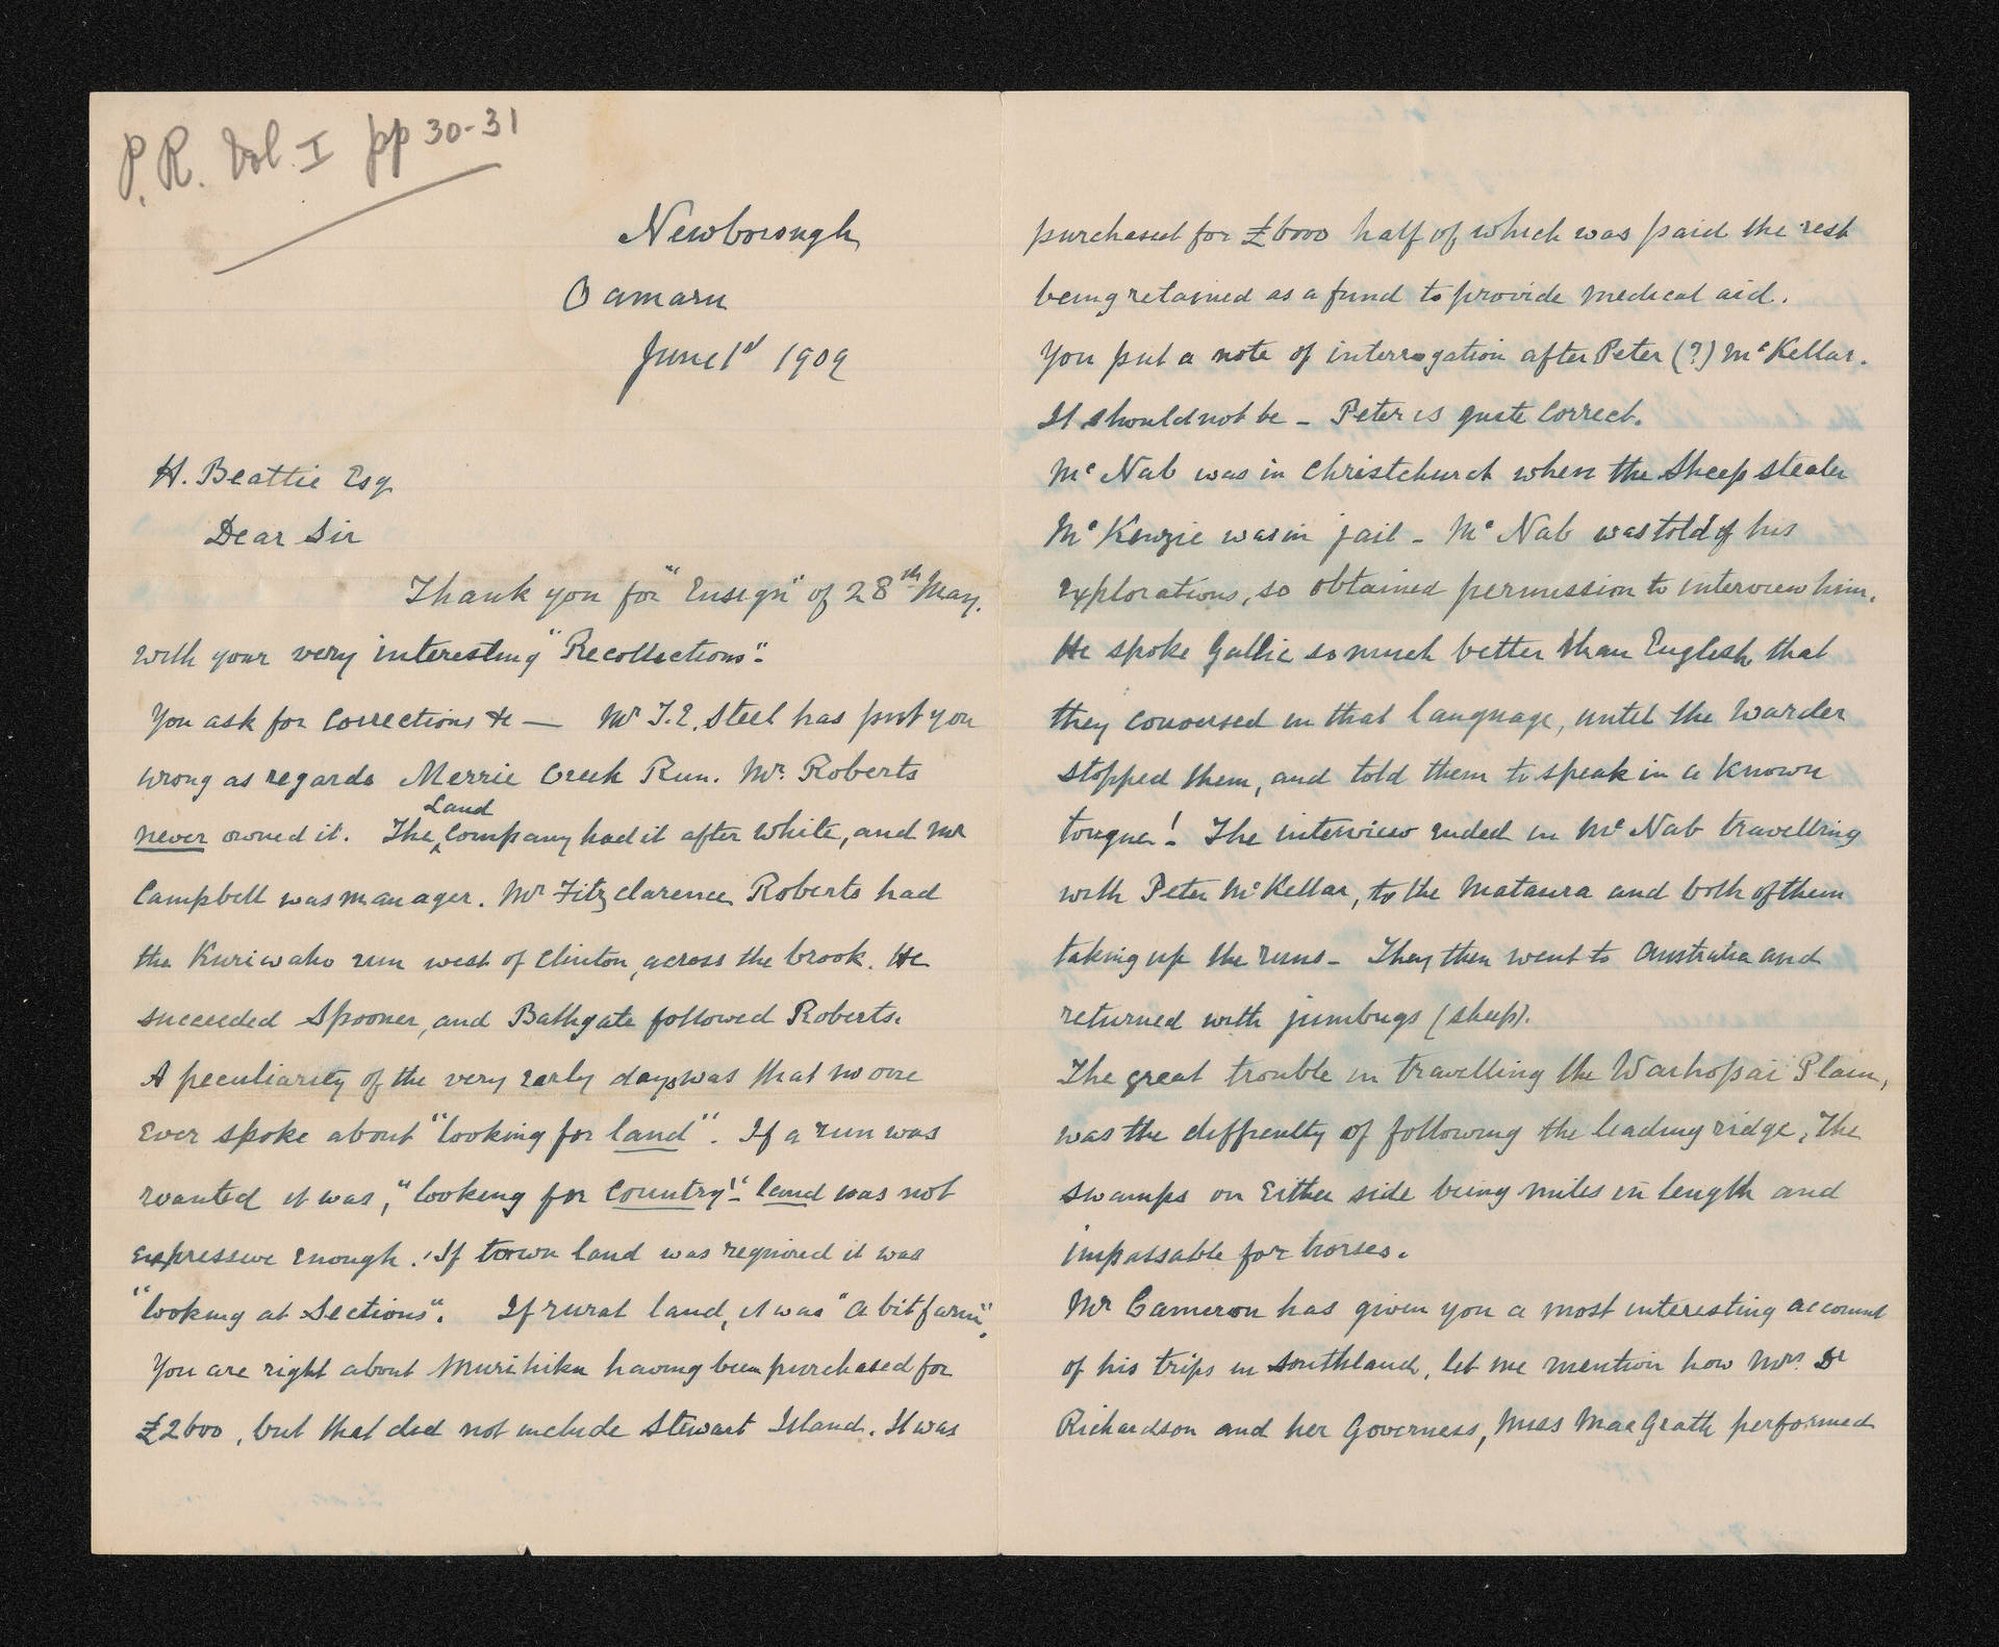 P. R. Vol. I pp 30-31
Newborough
Oamaru
June 1st 1909
H. Beattie Esq
Dear Sir
Thank you for "Ensign" of 28th May.
with your very interesting "Recollections".
You ask for corrections &c — Mr T.E. Steel has put you
wrong as regards Merrie Creek Run. Mr. Roberts
never owned it. The Land Company had it after White, and Mr
Campbell was manager. Mr Fitzclarence Roberts had
the Kuriwaho run west of Clinton, across the brook. He
succeeded Spooner, and Bathgate followed Roberts.
A peculiarity of the very early days was that no one
Ever spoke about "looking for land". If a run was
wanted it was, "looking for Country"- land was not
Expressive Enough. If town land was required it was
"looking at Sections". If rural land, it was "a bit farm".
You are right about Murihiku having been purchased for
£2600, but that did not include Stewart Island. It was
purchased for £6000 half of which was paid the rest
being retained as a fund to provide medical aid.
You put a note of interrogation after Peter (?) McKellar.
It should not be - Peter is quite correct.
McNab was in Christchurch when the Sheep stealer
McKenzie was in jail - McNab was told of his
explorations, so obtained permission to interview him.
He spoke Gallic so much better than English that
they conversed in that language, until the Warder
stopped them, and told them to speak in a Known
tongue! The interview ended in McNab travelling
with Peter McKellar, to the Mataura and both of them
taking up the runs - They then went to Australia and
returned with jumbugs (sheep).
The great trouble in travelling the Waihopai Plain,
was the difficulty of following the leading ridge, The
swamps on Either side being miles in length and
impassable for horses.
Mr Cameron has given you a most interesting account
of his trips in Southland, let me mention how Mrs. Dr
Richardson and her Governess, Miss MacGrath performed